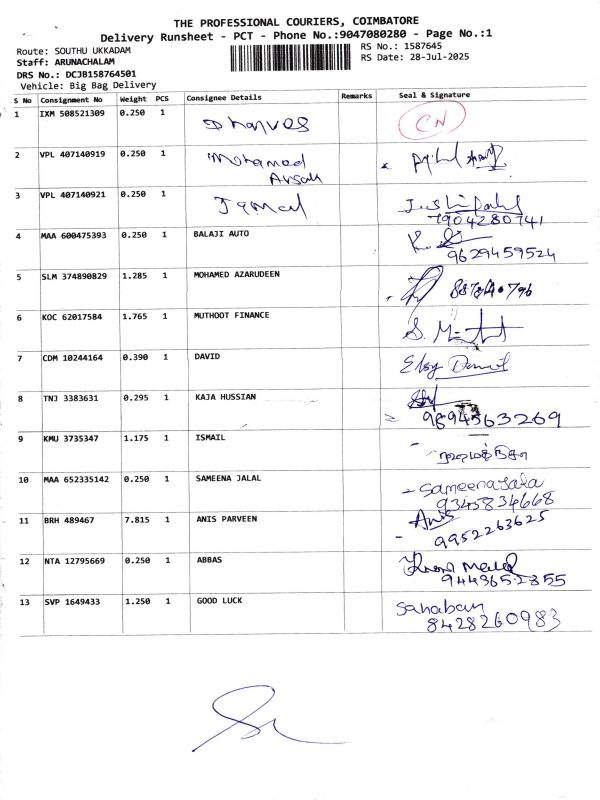 THE PROFESSIONAL COURIERS, COIMBATORE
Delivery Runsheet - PCT - Phone No.:9047080280 - Page No.:1
Route: SOUTHU UKKADAM RS No.: 1587645
Staff: ARUNACHALAM RS Date: 28-Jul-2025
DRS No.: DCJB158764501
Vehicle: Big Bag Delivery
S No Consignment No Weight PCS Consignee Details Remarks Seal & Signature
1 IXM 508521309 0.250 1 CN
2 VPL 407140919 0.250 1 Mohamed
3 VPL 407140921 0.250 1 Jamal
7904280741
4 MAA 600475393 0.250 1 BALAJI AUTO
9629459524
5 SLM 374890829 1.285 1 MOHAMED AZARUDEEN
6 KOC 62017584 1.765 1 MUTHOOT FINANCE
7 CDM 10244164 0.390 1 DAVID
8 TNJ 3383631 0.295 1 KAJA HUSSIAN
9894563269
9 KMU 3735347 1.175 1 ISMAIL
10 MAA 652335142 0.250 1 SAMEENA JALAL
9345834668
11 BRH 489467 7.815 1 ANIS PARVEEN Anis
9952263625
12 NTA 12795669 0.250 1 ABBAS
13 SVP 1649433 1.250 1 GOOD LUCK Sahaban
8428260983